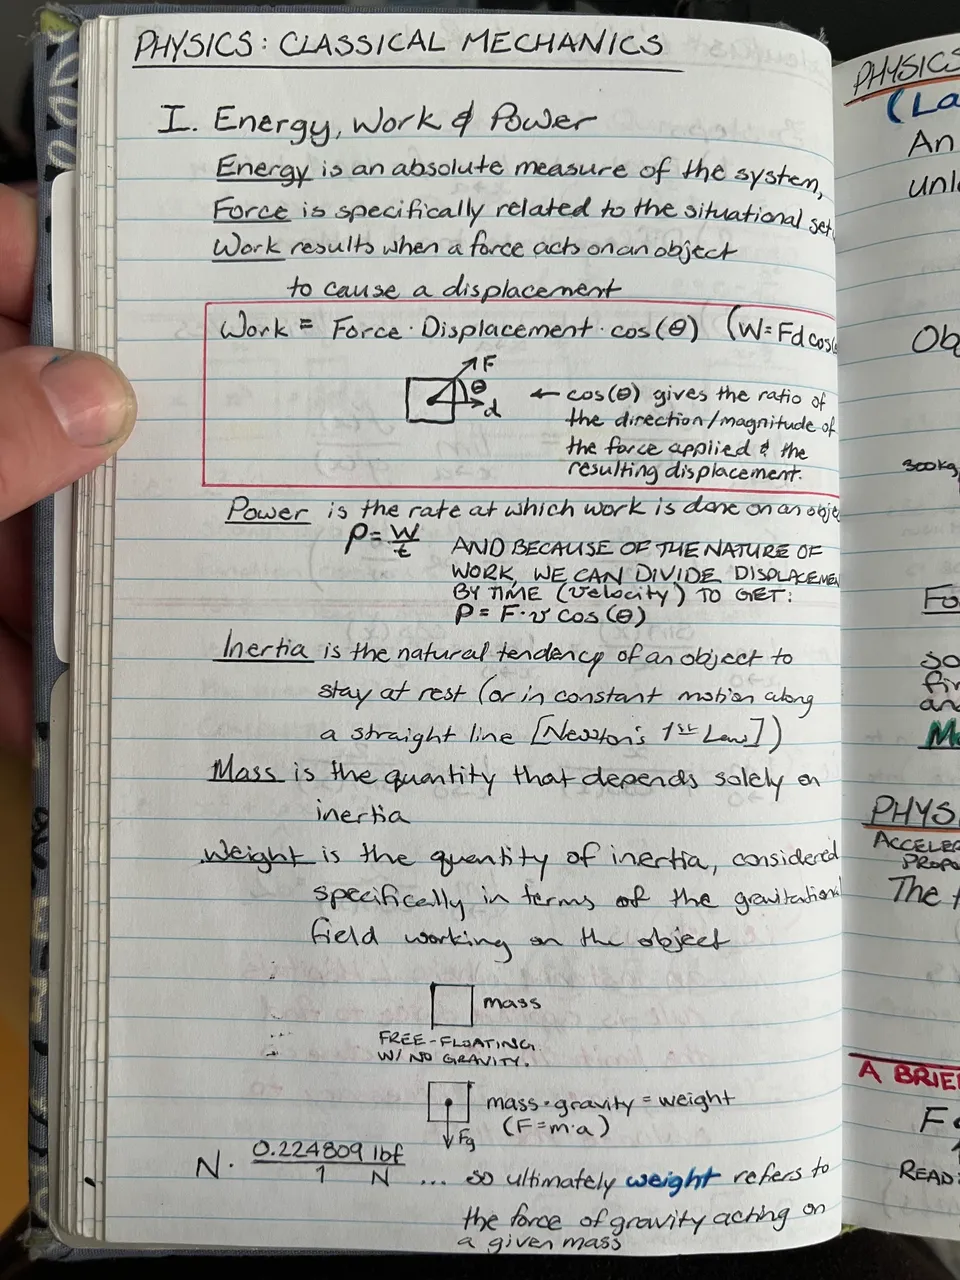 PHYSICS: CLASSICAL MECHANICS
I. Energy, Work & Power
Energy is an absolute measure of the system,
Force is specifically related to the situational set.
Work results when a force acts on an object
to cause a displacement
Work = Force · Displacement · cos(θ) (W=Fd cos(
F
θ
d
← cos(θ) gives the ratio of
the direction/magnitude of
the force applied & the
resulting displacement.
Power is the rate at which work is done on an obje
P = W/t
AND BECAUSE OF THE NATURE OF
WORK, WE CAN DIVIDE DISPLACEMEN
BY TIME (velocity) TO GET:
P = F·v cos(θ)
Inertia is the natural tendency of an object to
stay at rest (or in constant motion along
a straight line [Newton's 1st Law])
Mass is the quantity that depends solely on
inertia
Weight is the quantity of inertia, considered
specifically in terms of the gravitational
field working on the object
mass
FREE-FLOATING
W/ NO GRAVITY.
mass · gravity = weight
(F=m·a)
Fg
N · 0.224809 lbf / 1 N ... so ultimately weight refers to
the force of gravity acting on
a given mass
PHYSICS
(La
An
unl
Ob
300kg
Fo
so
fir
and
Me
PHYS
ACCELER
PROPO
The f
A BRIEF
F
READ